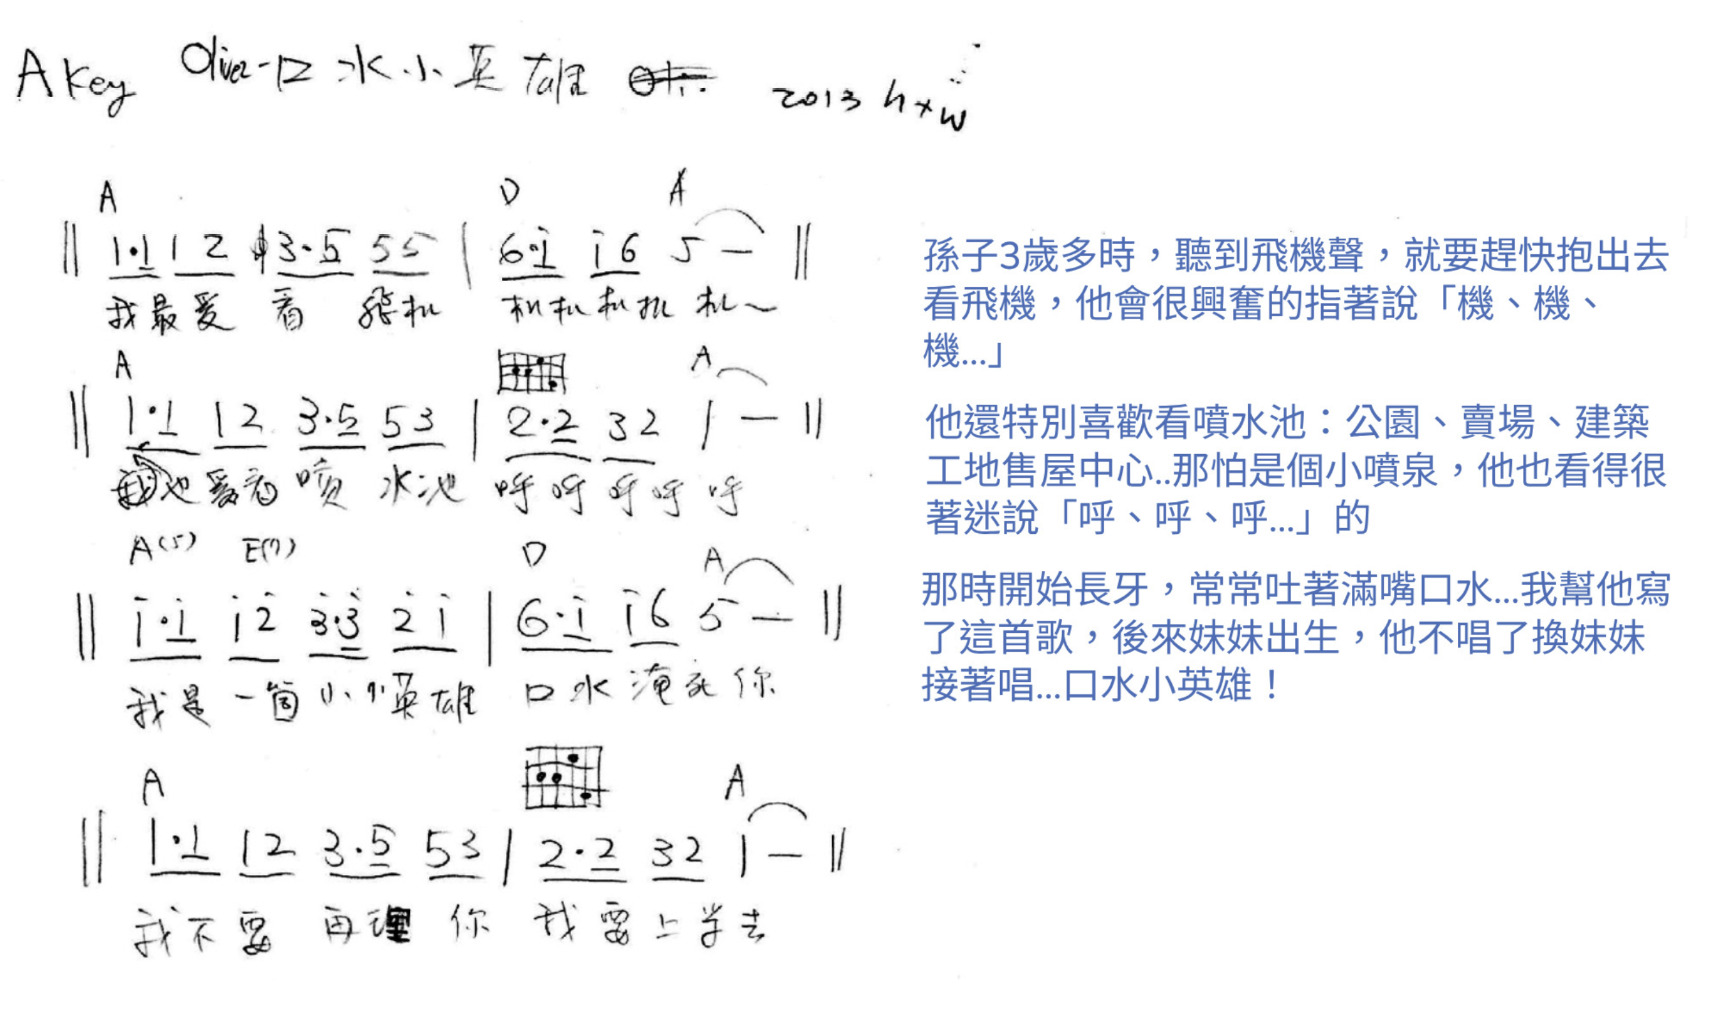 A Key Oliver-口水小英雄 2013 hxw
A D A
|| 1·1 1 2 3·5 5 5 | 6·i i 6 5 — ||
我最愛 看 飛机 机机机机 机~
A A
|| 1·1 1 2 3·5 5 3 | 2·2 3 2 1 — ||
我也愛看 噴 水池 呼呼呼呼 呼
A(5) E(7) D A
|| i·i i 2̇ 3̇·3̇ 2̇ i | 6·i i 6 5 — ||
我是 一箇 小小英雄 口水 淹死 你
A A
|| 1·1 1 2 3·5 5 3 | 2·2 3 2 1 — ||
我不要 再理 你 我要上学去
孫子3歲多時，聽到飛機聲，就要趕快抱出去
看飛機，他會很興奮的指著說「機、機、
機...」
他還特別喜歡看噴水池：公園、賣場、建築
工地售屋中心..那怕是個小噴泉，他也看得很
著迷說「呼、呼、呼...」的
那時開始長牙，常常吐著滿嘴口水...我幫他寫
了這首歌，後來妹妹出生，他不唱了換妹妹
接著唱...口水小英雄！